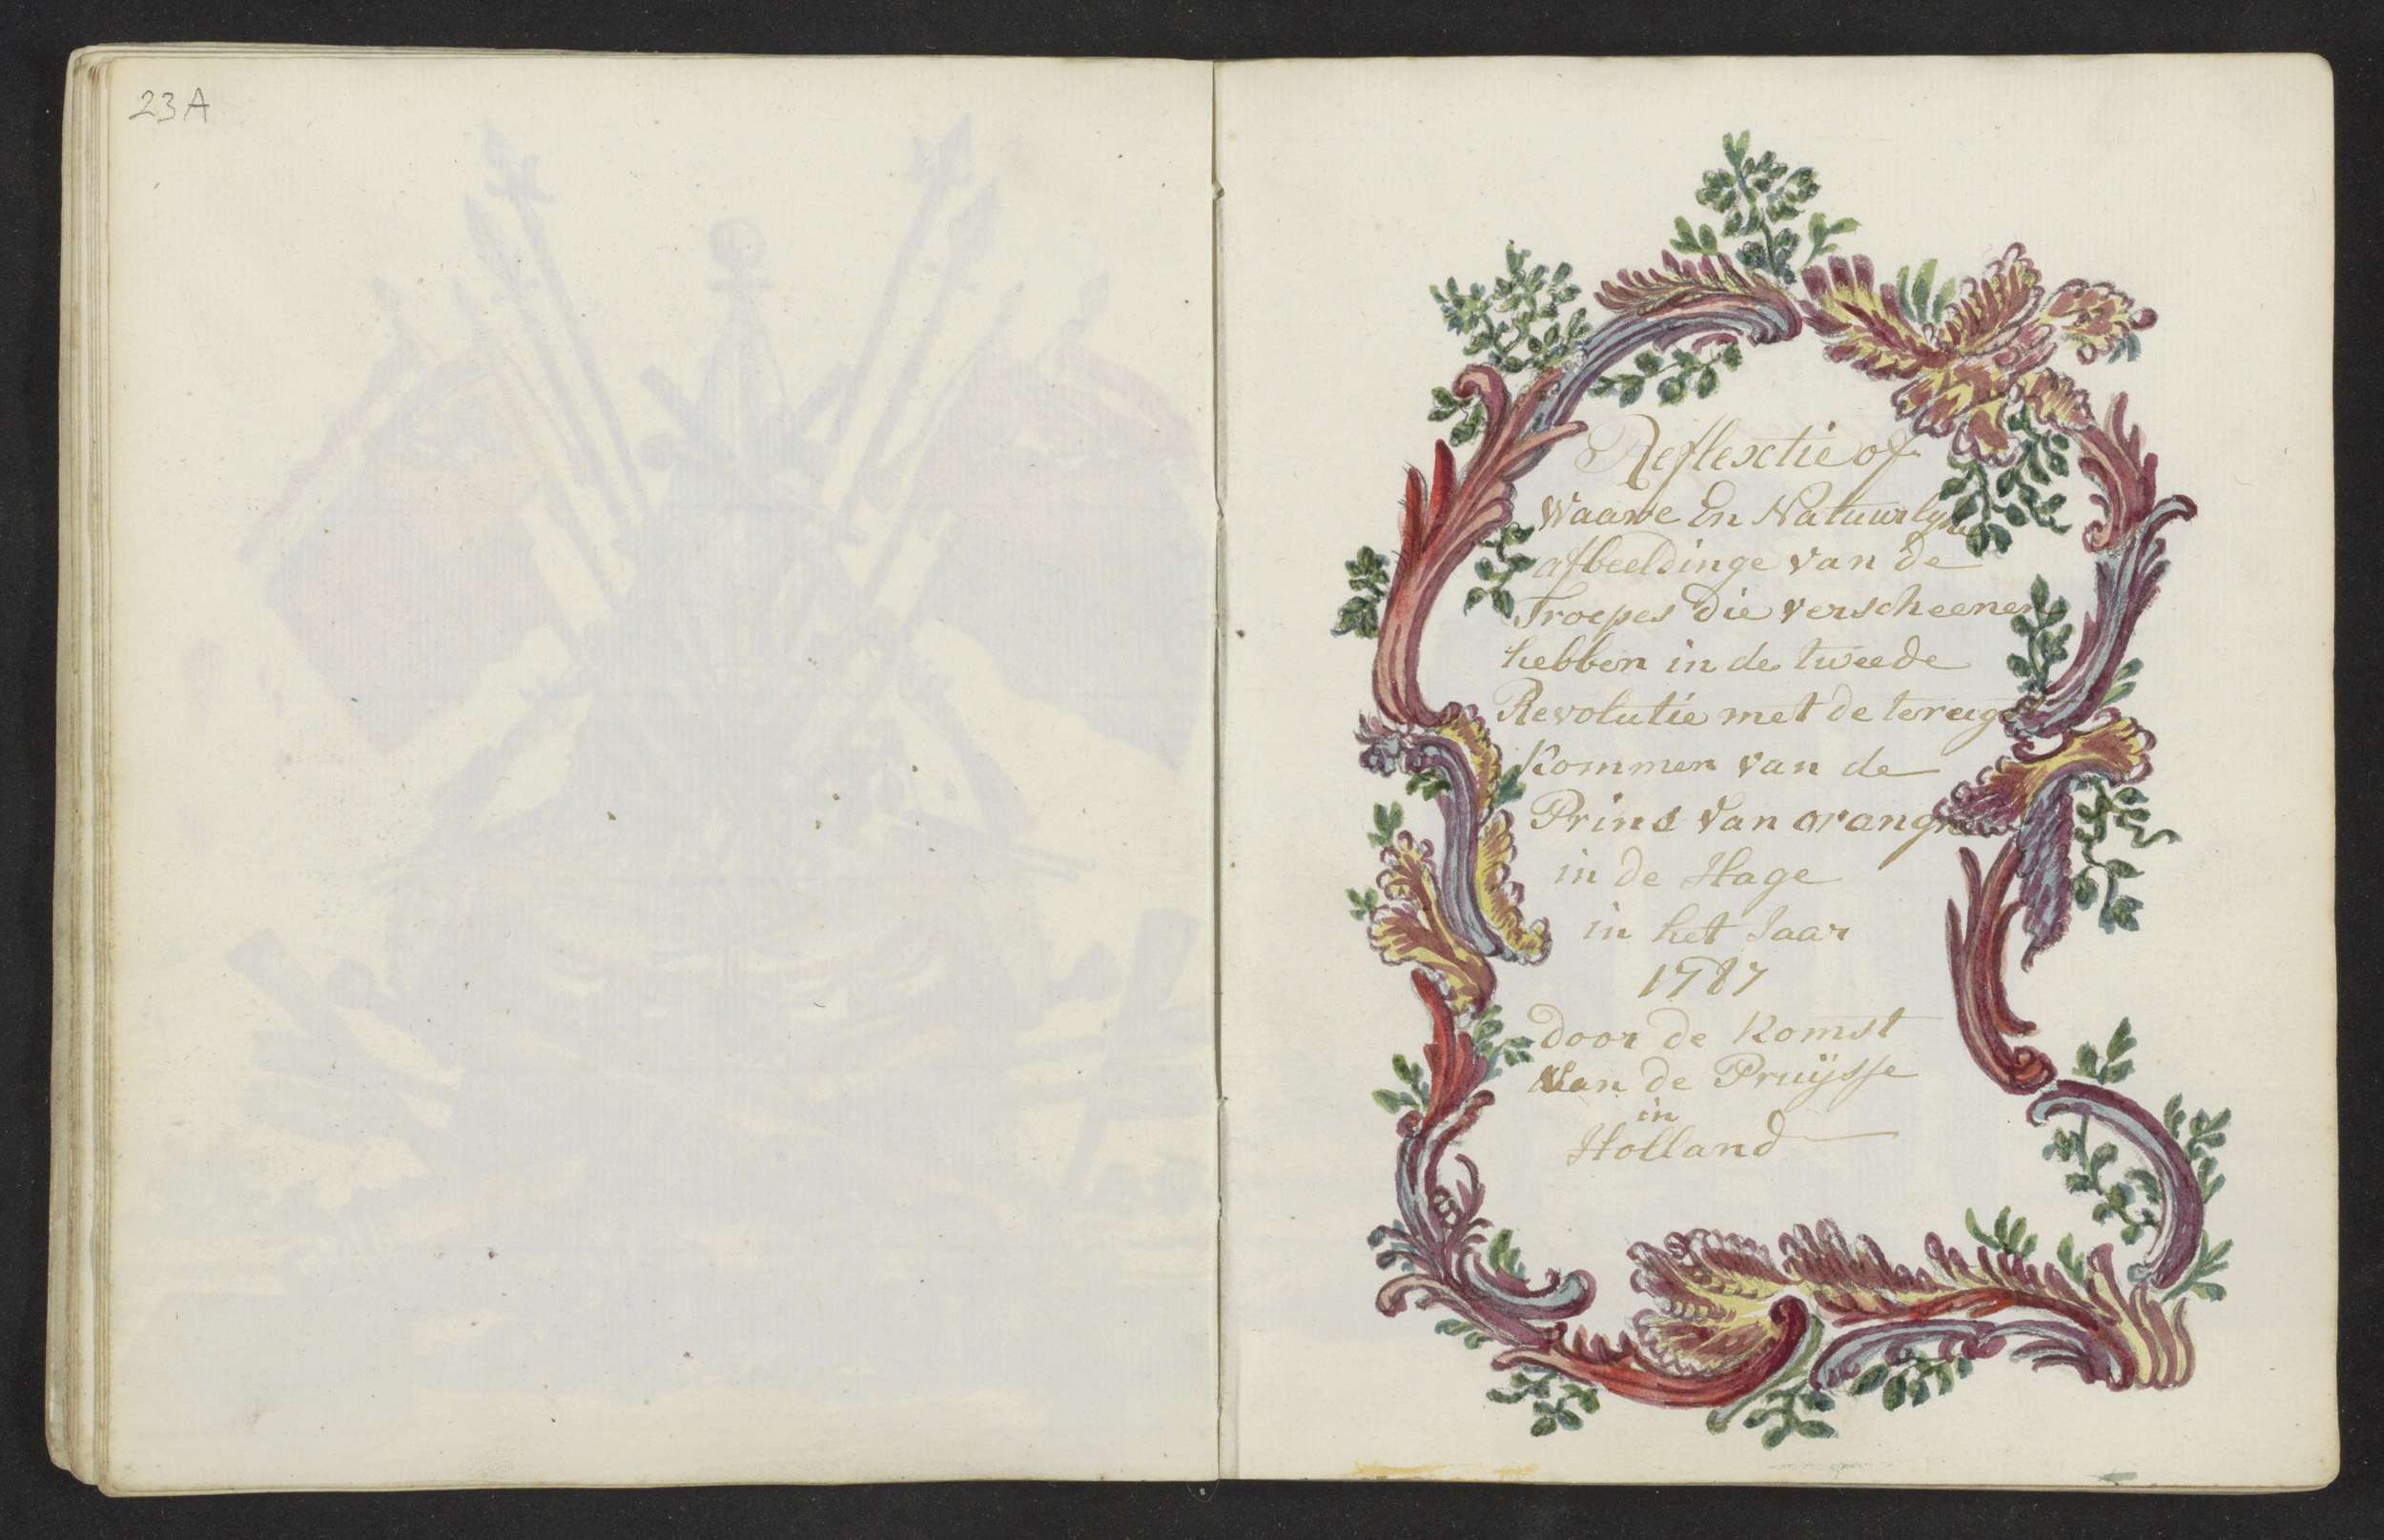 23A
Reflexctie of
Waare En Natuurlyke
afbeeldinge van de
Troepes die verscheenen
hebben in de tweede
Revolutie met de tereuge
Kommen van de
Prins van orangne
in de Hage
in het Jaar
1787
door de Komst
van de Pruÿsse
in
Holland